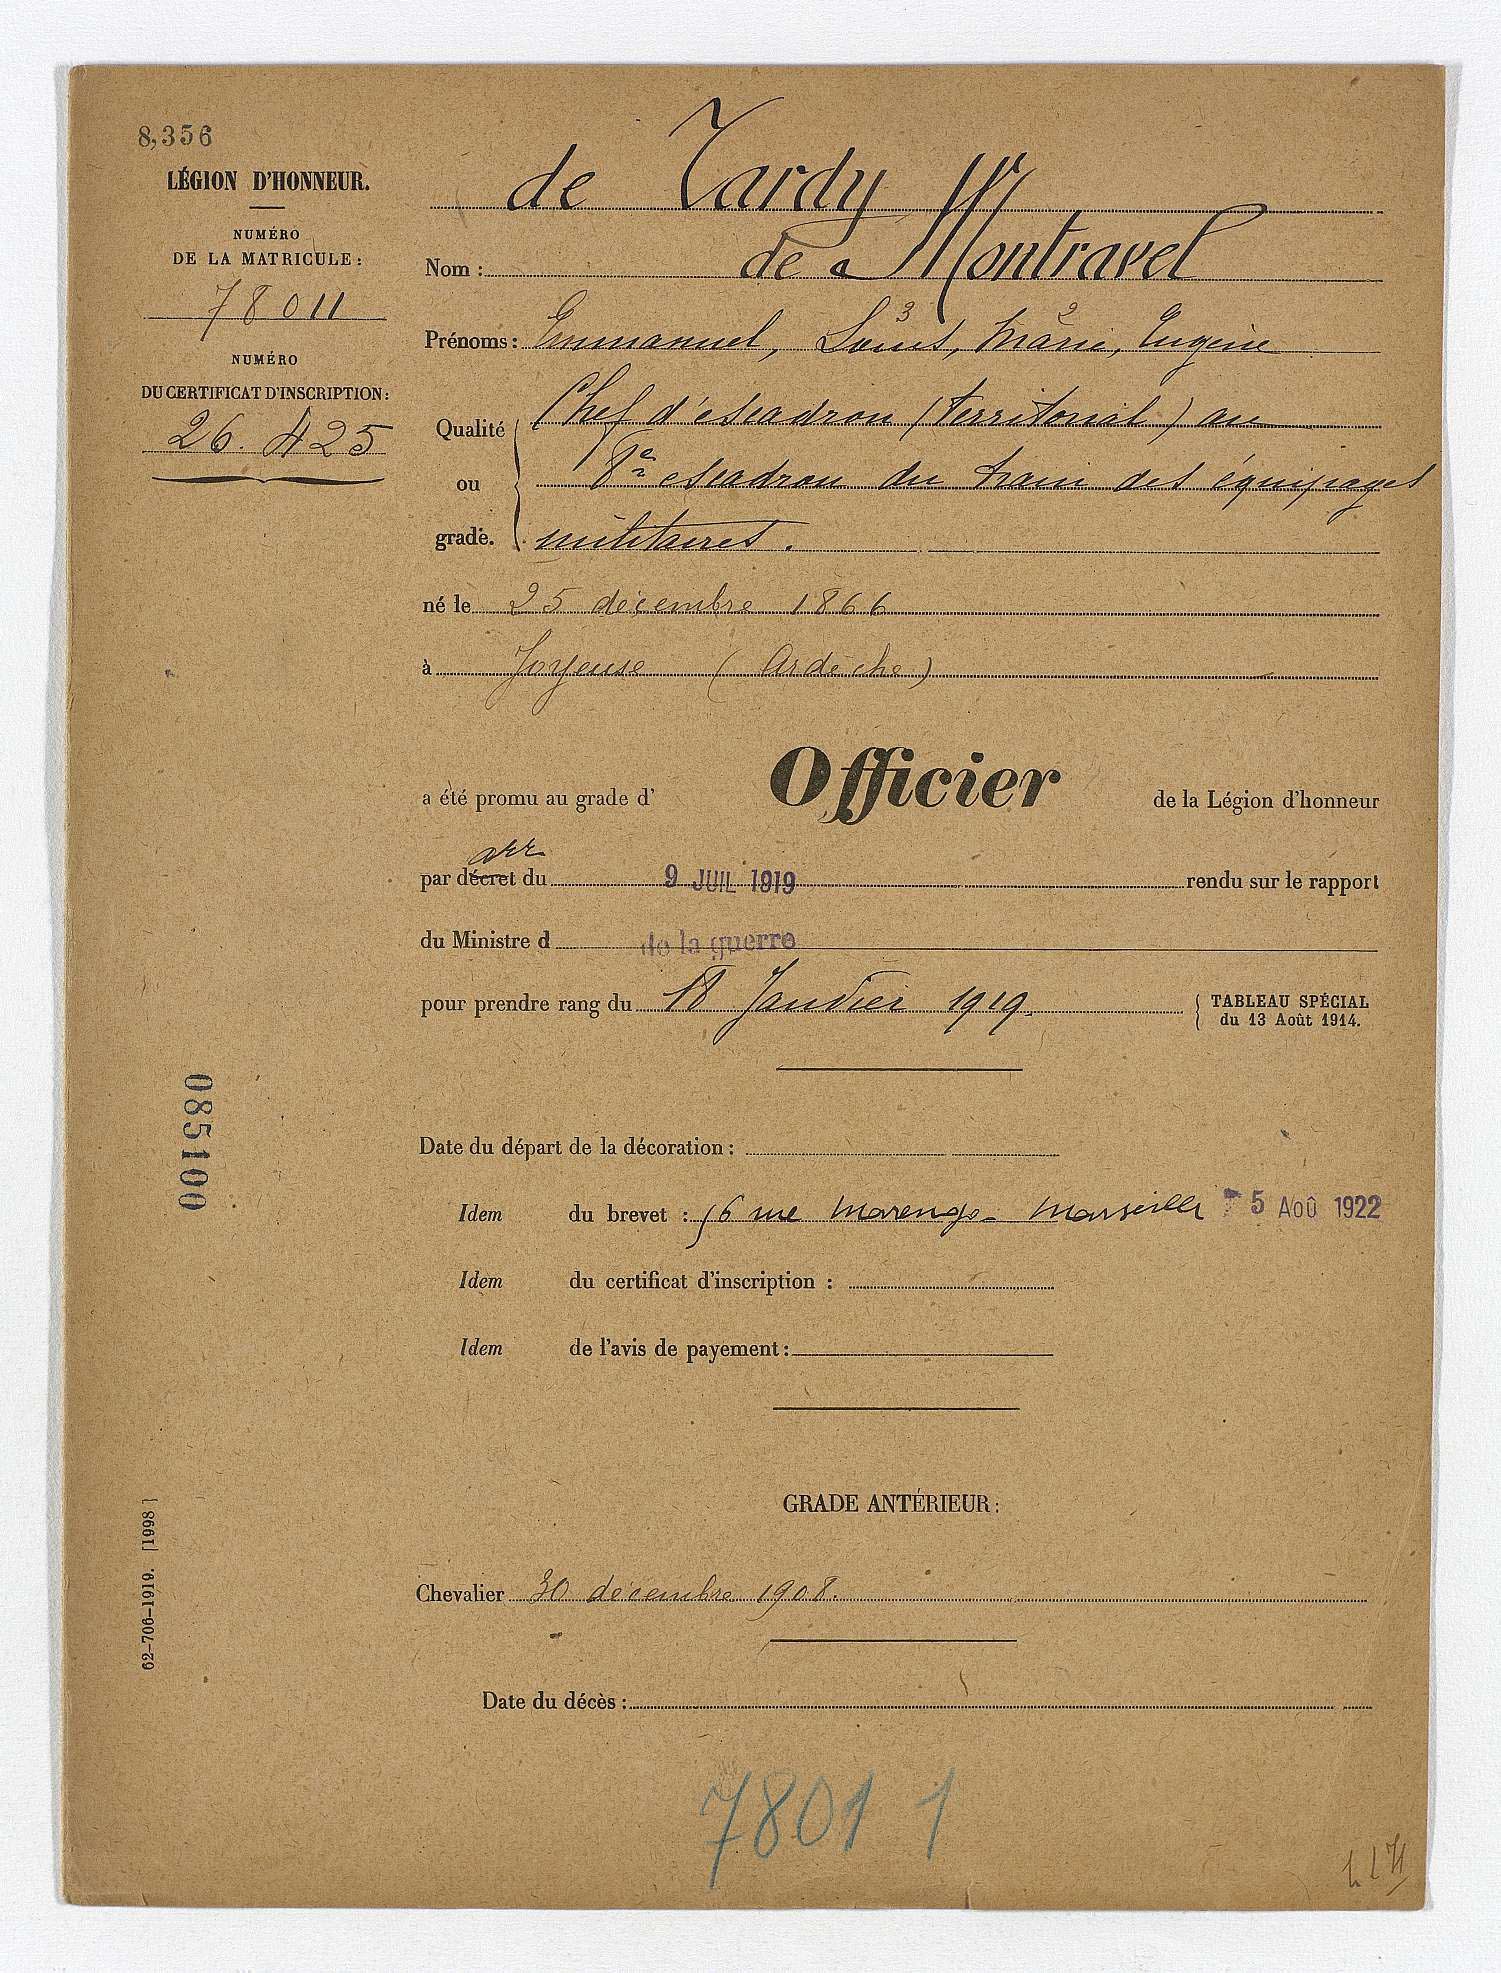 8,356
LÉGION D'HONNEUR.
NUMÉRO
DE LA MATRICULE :
78011
NUMÉRO
DU CERTIFICAT D'INSCRIPTION :
26.425
de Tardy
Nom : de Montravel
3 2
Prénoms : Emmanuel, Louis, Marie, Eugène
Qualité ou grade. Chef d'escadron (territorial) au
8e escadron du train des équipages
militaires.
né le 25 décembre 1866
à Joyeuse (Ardèche)
a été promu au grade d' Officier de la Légion d'honneur
arr
par décret du 9 JUIL 1919 rendu sur le rapport
du Ministre d de la guerre
pour prendre rang du 18 Janvier 1919. TABLEAU SPÉCIAL
du 13 Août 1914.
085100
Date du départ de la décoration :
Idem du brevet : 56 rue Marengo - Marseille 5 AOÛ 1922
Idem du certificat d'inscription :
Idem de l'avis de payement :
GRADE ANTÉRIEUR :
Chevalier 30 décembre 1908.
Date du décès :
62-706-1919. [1998]
78011